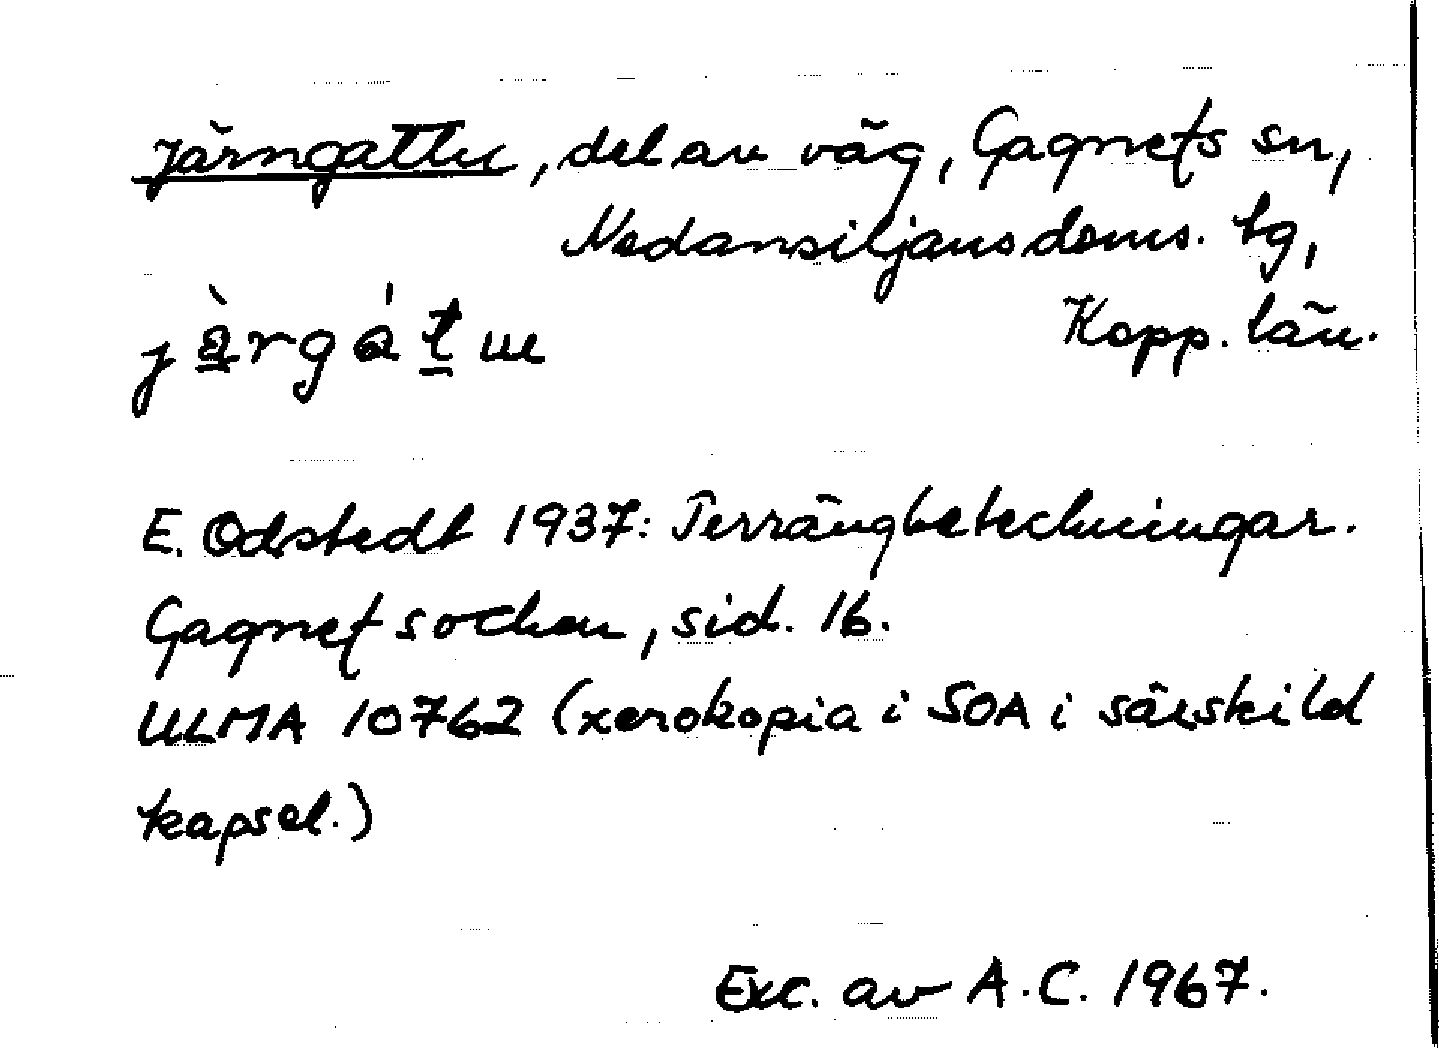 Järngattu, del av väg, Gagnefs sn,
Nedansiljans doms. lg,
Kopp. län.
E. Odstedt 1937: Terrängbeteckningar.
Gagnef socken, sid. 16.
ULMA 10762 (xerokopia i SOA i särskild
kapsel.)
Exc. av A.C. 1967.